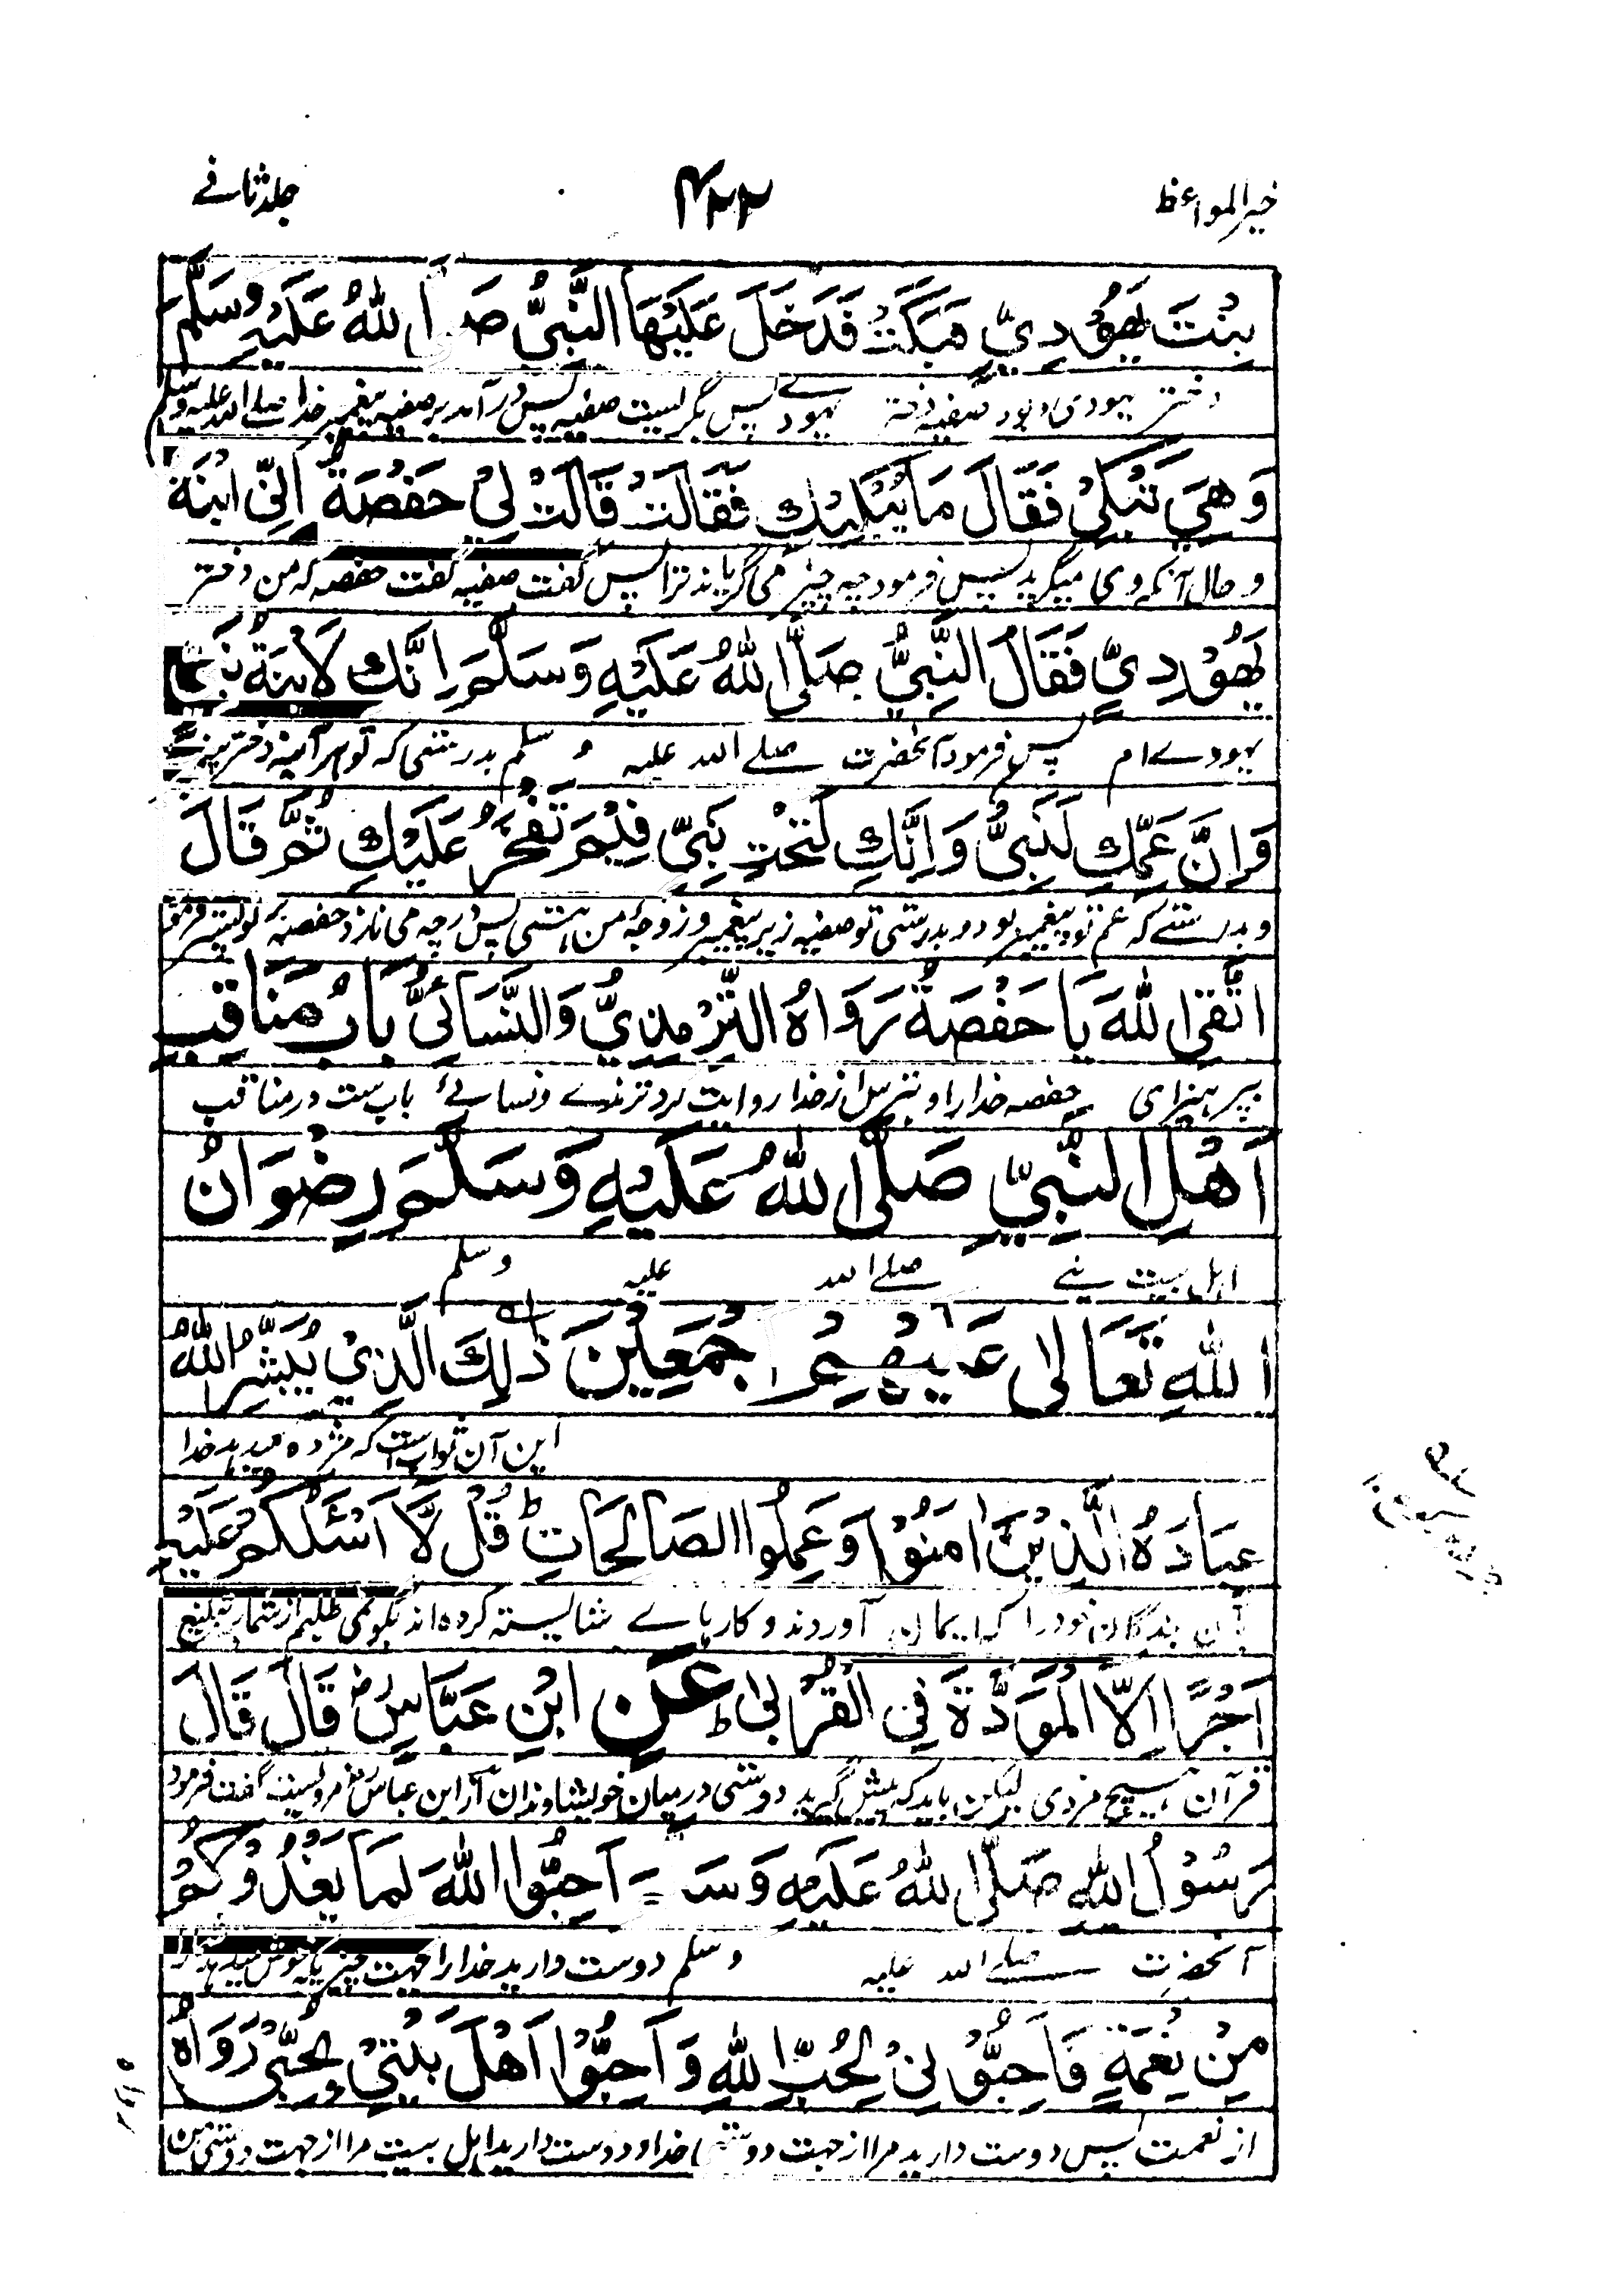 خیر المواعظ ۴۲۲ جلد ثانے
بِنْتَ یَهُوْدِیٍّ فَبَکَتْ فَدَخَلَ عَلَیْهَا النَّبِیُّ صَلَّى اللّٰهُ عَلَیْهِ وَسَلَّمَ
دختر یهودی و بود صفیه دختر یهودے پس بگریست صفیه پس در آمد بر صفیه پیغمبر خدا صلے الله علیه وسلم
وَهِیَ تَبْکِیْ فَقَالَ مَا یُبْکِیْكِ فَقَالَتْ قَالَتْ لِیْ حَفْصَةُ اِنِّی ابْنَةُ
و حال آنکه وی میگرید پس فرمود چه چیز می گریاند ترا پس گفت صفیه گفت حفصه که من دختر
یَهُوْدِیٍّ فَقَالَ النَّبِیُّ صَلَّى اللّٰهُ عَلَیْهِ وَسَلَّمَ اِنَّكِ لَابْنَةُ نَبِیٍّ
یهودے ام پس فرمود آنحضرت صلے الله علیه وسلم بدرستی که تو هر آئینه دختر
وَاِنَّ عَمَّكِ لَنَبِیٌّ وَاِنَّكِ لَتَحْتَ نَبِیٍّ فَفِیْمَ تَفْخَرُ عَلَیْكِ ثُمَّ قَالَ
و بدرستے که عم تو پیغمبر بود و بدرستی تو صفیه زیر پیغمبر و زوجۂ من هستی پس در چه می نازد حفصه بر تو پستر فرمود
اتَّقِی اللّٰهَ یَا حَفْصَةُ رَوَاهُ التِّرْمِذِیُّ وَالنَّسَائِیُّ بَابُ مَنَاقِبِ
بپرهیز ای حفصه خدا را و بترس از خدا روایت کرد ترمذے و نسائے باب ست در مناقب
اَهْلِ النَّبِیِّ صَلَّى اللّٰهُ عَلَیْهِ وَسَلَّمَ رِضْوَانُ
اهل بیت نبے صلے الله علیه وسلم
اللّٰهِ تَعَالٰى عَلَیْهِمْ اَجْمَعِیْنَ ذٰلِكَ الَّذِیْ یُبَشِّرُ اللّٰهُ
این آن ثواب است که مژده میدهد خدا
عِبَادَهُ الَّذِیْنَ اٰمَنُوْا وَعَمِلُوا الصَّالِحَاتِ ط قُلْ لَّا اَسْئَلُکُمْ عَلَیْهِ
آن بندگان خود را که ایمان آوردند و کارهاے شایسته کرده اند بگو نمی طلبم از شما بر تبلیغ
اَجْرًا اِلَّا الْمَوَدَّةَ فِی الْقُرْبٰى ط عَنِ ابْنِ عَبَّاسٍ رض قَالَ قَالَ
قرآن هیچ مزدی لیکن باید که پیش گیرید دوستی درمیان خویشاوندان از ابن عباس رض مرویست گفت فرمود
رَسُوْلُ اللّٰهِ صَلَّى اللّٰهُ عَلَیْهِ وَسَـ اَحِبُّوا اللّٰهَ لِمَا یَغْذُوْکُمْ
آنحضرت صلے الله علیه وسلم دوست دارید خدا را جهت چیزیکه
مِنْ نِعْمَةٍ فَاَحِبُّوْنِیْ لِحُبِّ اللّٰهِ وَاَحِبُّوْا اَهْلَ بَیْتِیْ بِحُبِّیْ رَوَاهُ
از نعمت پس دوست دارید مرا از جهت دوستی خدا و دوست دارید اهل بیت مرا از جهت دوستی من